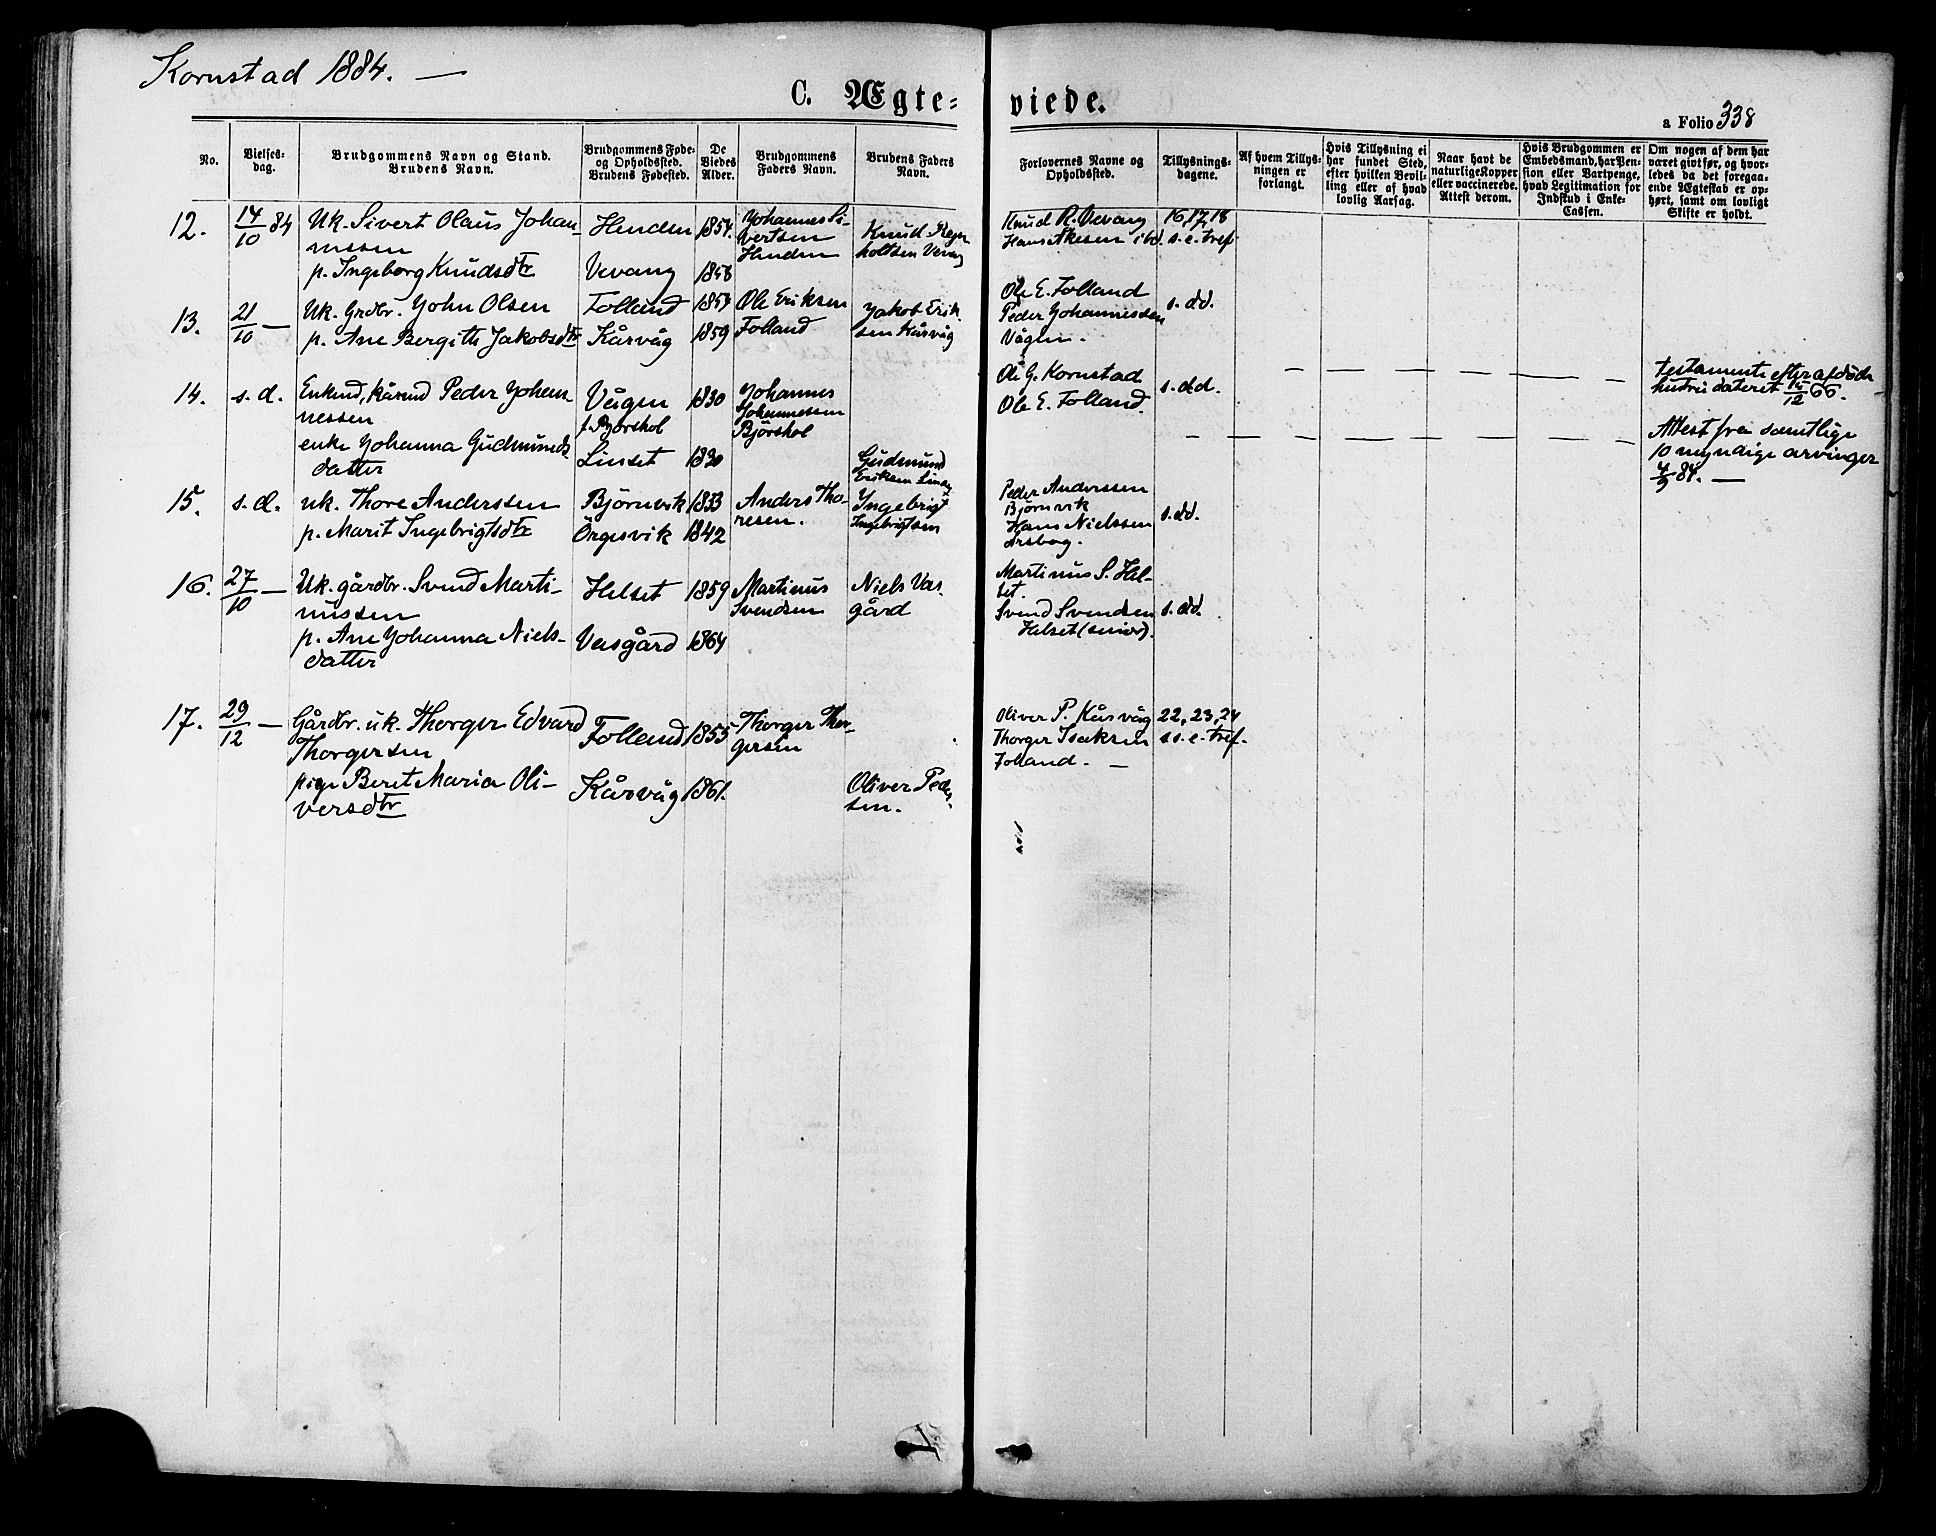 Kornstad 1884. —
C. Ægte= viede.
a Folio 338
No.
Vielses-
dag.
Brudgommens Navn og Stand.
Brudens Navn.
Brudgommens Føde-
og Opholdssted.
Brudens Fødested.
De
Viedes
Alder.
Brudgommens
Faders Navn.
Brudens Faders
Navn.
Forlovernes Navne og
Opholdssted.
Tillysnings-
dagene.
Af hvem Tillys-
ningen er
forlangt.
Hvis Tillysning ei
har fundet Sted,
efter hvilken Bevil-
ling eller af hvad
lovlig Aarsag.
Naar havt de
naturlige Kopper
eller vaccinerede.
Attest derom.
Hvis Brudgommen er
Embedsmand, har Pen-
sion eller Vartpenge,
hvad Legitimation for
Indskud i Enke-
Cassen.
Om nogen af dem har
været givt før, og hvor-
ledes da det foregaa-
ende Ægteskab er op-
hørt, samt om lovligt
Skifte er holdt.
12. 14/10 84
Uk. Sivert Olaus Johan-
nessen
p. Ingeborg Knudsdtr
Henden 1854.
Vevang 1858
Johannes Si-
vertsen
Henden
Knud Regn
holtsen Vevag
Knud R. Vevang
Hans Akesen ibd.
16, 17, 18
s. e. tref.
13. 21/10 —
Uk. Grdbr. John Olsen
p. Ane Bergitte Jakobsdtr
Folland 1857
Kårvåg 1859
Ole Eriksen
Folland
Jakob Erik-
sen Kårvåg
Ole E. Folland
Peder Johannessen
Vågen.
s. dd.
14. s. d.
Enkmd, kårmd Peder Johan-
nessen
enke Johanna Gudmunds
datter
Vågen 1830
f. Bjørshol
Linset 1820
Johannes
Johannessen
Bjørshol
Gudmund
Eriksen Linset
Ole G. Kornstad
Ole E. Folland.
s. d.d.
— — — — —
Testamente efter afdøde
hustru dateret 14/12 66.
— — — — — — —
Attest fra samtlige
10 myndige arvinger
4/9 84. —
15. s. d.
uk. Thore Anderssen
p. Marit Ingebrigtsdtr
Bjørnvik 1833
Ørgesvik 1842
Anders Tho-
resen.
Ingebrigt
Ingebrigtsen
Peder Anderssen
Bjørnvik
Hans Nielssen
Arsbog.
s. dd.
16. 27/10 —
Uk. gårdbr. Svend Marti-
nussen
p. Ane Johanna Niels-
datter
Helset 1859
Vasgård 1864
Martinus
Svendsen
Niels Vas-
gård
Martinus S. Hel-
set.
Svend Svendsen
Helset (senior).
s. dd.
17. 29/12 —
Gårdbr. uk. Thorger Edvard
Thorgersen
pige Beret Maria Oli-
versdtr
Folland 1855
Kårvåg 1861.
Thorger Thor-
gersen
Oliver Peder-
sen.
Oliver P. Kårvåg
Thorger Isaksen
Folland. —
22, 23, 24
s. s. e. tref.